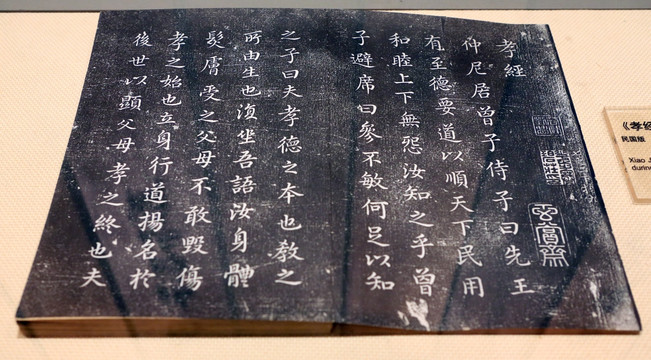 孝經
仲尼居曾子侍子曰先王
有至德要道以順天下民用
和睦上下無怨汝知之乎曾
子避席曰參不敏何足以知
之子曰夫孝德之本也教之
所由生也復坐吾語汝身體
髮膚受之父母不敢毀傷
孝之始也立身行道揚名於
後世以顯父母孝之終也夫
《孝經
民国版
Xiao J
durin